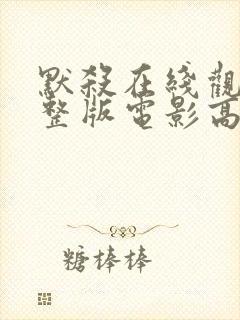 默殺在綫觀
整版電影高
糖棒棒